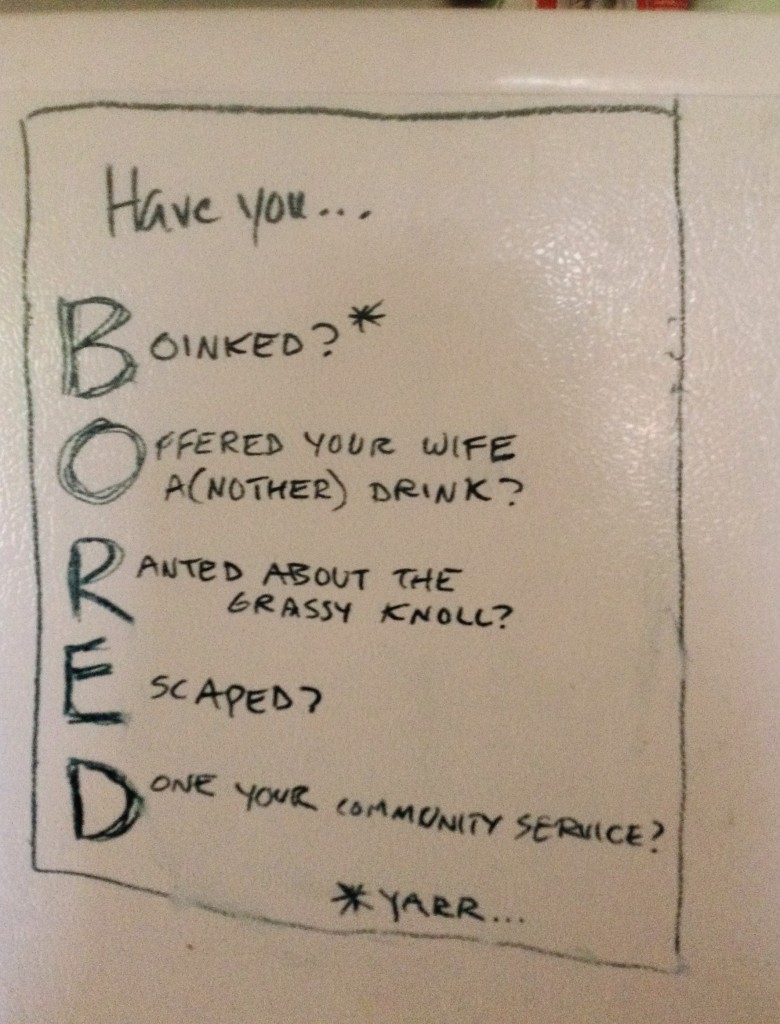 Have you...
BOINKED?*
OFFERED YOUR WIFE
A(NOTHER) DRINK?
RANTED ABOUT THE
GRASSY KNOLL?
ESCAPED?
DONE YOUR COMMUNITY SERVICE?
*YARR...